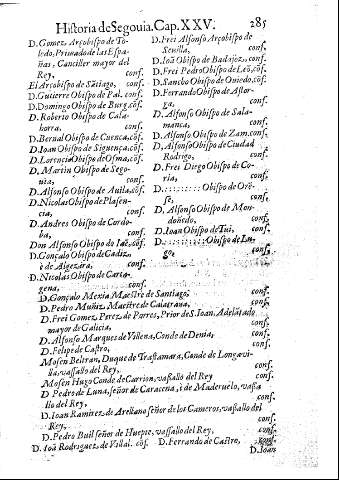 Historia de Segouia. Cap. XXV. 285
D. Gomez, Arçobispo de To-
ledo, Primado de las Espa-
ñas, Canciller mayor del
Rey, conf.
El Arçobispo de Sãtiago, conf.
D. Gutierre Obispo de Pal. conf.
D. Domingo Obispo de Burg. cõf.
D. Roberto Obispo de Cala-
horra, conf.
D. Bernal Obispo de Cuenca, cõf.
D. Ioan Obispo de Siguença, cõf.
D. Lorencio Obispo de Osma, cõf.
D. Martin Obispo de Sego-
uia, conf.
D. Alfonso Obispo de Auila, cõf.
D. Nicolas Obispo de Plasen-
cia, conf.
D. Andres Obispo de Cordo-
ba, conf.
Don Alfonso Obispo do Iaẽ, cõf.
D. Gonçalo Obispo de Cadiz,
è de Algezira, conf.
D. Nicolas Obispo de Carta-
gena, conf.
D. Frei Alfonso Arçobispo de
Seuilla, conf.
D. Ioã Obispo de Badajoz, conf.
D. Frei Pedro Obispo de Leõ, cõf.
D. Sancho Obispo de Ouiedo, cõf.
D. Ferrando Obispo de Astor-
ga, conf.
D. Alfonso Obispo de Sala-
manca, conf.
D. Alfonso Obispo de Zam. conf.
D. Alfonso Obispo de Ciudad
Rodrigo, conf.
D. Frei Diego Obispo de Co-
ria, conf.
D. :::::::::: Obispo de Orẽ-
se, conf.
D. Alfonso Obispo de Mon-
doñedo, conf.
D. Ioan Obispo de Tui, conf.
D. :::::::::: Obispo de Lu-
go, conf.
D. Gonçalo Mexia, Maestre de Santiago, conf.
D. Pedro Muñiz, Maestre de Calatraua, conf.
D. Frei Gomez Perez de Porres, Prior de S. Ioan, Adelãtado
mayor de Galicia, conf.
D. Alfonso Marques de Villena, Conde de Denia, conf.
D. Felipe de Castro, conf.
Mosen Beltran, Duque de Trastamara, Conde de Longavi-
lla, vassallo del Rey, conf.
Mosen Hugo Conde de Carrion, vassallo del Rey conf.
D. Pedro de Luna, señor de Caracena, è de Maderuelo, vassa
llo del Rey, conf.
D. Ioan Ramirez de Arellano señor de los Cameros, vassallo del
Rey, conf.
D. Pedro Buil señor de Huepte, vassallo del Rey, conf.
D. Ioã Rodriguez de Villal. cõf. D. Ferrando de Castro, conf.
D. Ioan